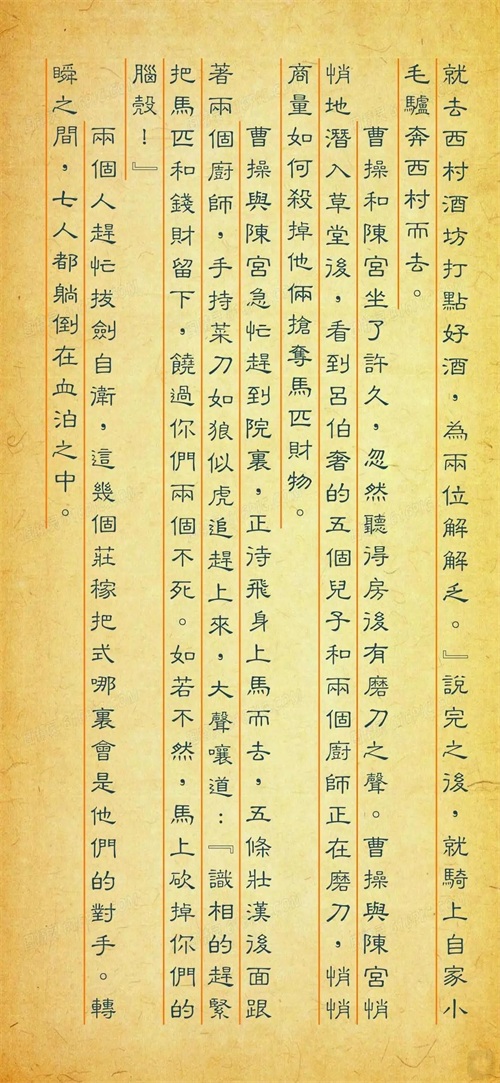 就去西村酒坊打點好酒，為兩位解解乏。』說完之後，就騎上自家小
毛驢奔西村而去。
曹操和陳宮坐了許久，忽然聽得房後有磨刀之聲。曹操與陳宮悄
悄地潛入草堂後，看到呂伯奢的五個兒子和兩個廚師正在磨刀，悄悄
商量如何殺掉他倆搶奪馬匹財物。
曹操與陳宮急忙趕到院裏，正待飛身上馬而去，五條壯漢後面跟
著兩個廚師，手持菜刀如狼似虎追趕上來，大聲嚷道：『識相的趕緊
把馬匹和錢財留下，饒過你們兩個不死。如若不然，馬上砍掉你們的
腦殼！』
兩個人趕忙拔劍自衛，這幾個莊稼把式哪裏會是他們的對手。轉
瞬之間，七人都躺倒在血泊之中。